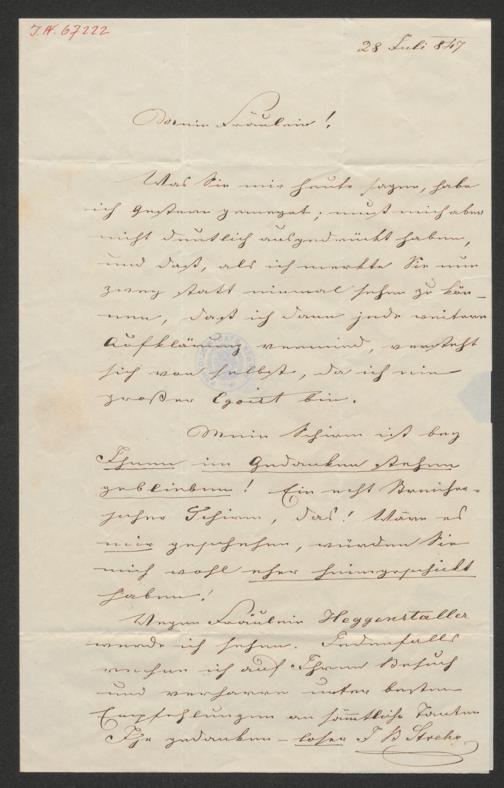 I.N. 67222
28 Juli 847
Mein Fräulein!
Was Sie mir heute sagen, habe
ich gestern gemeynt; muß mich aber
nicht deutlich ausgedrückt haben,
und daß, als ich merkte Sie nur
zwey statt einmal sehen zu kön-
nen, daß ich dann jede weitere
Aufklärung vermied, versteht
sich von selbst, da ich ein
großer Egoist bin.
Mein Schirm ist bey
Ihnen im Gedanken stehen
geblieben! Ein echt Streicher-
scher Schirm, das! Wäre es
mir geschehen, würden Sie
mich wohl eher heimgeschickt
haben!
Wegen Fräulein Heggenstaller
werde ich sehen. Jedenfalls
rechne ich auf Ihren Besuch
und verharre unter besten
Empfehlungen an sämtliche Tanten
Ihr gedanken-loser J B Streicher